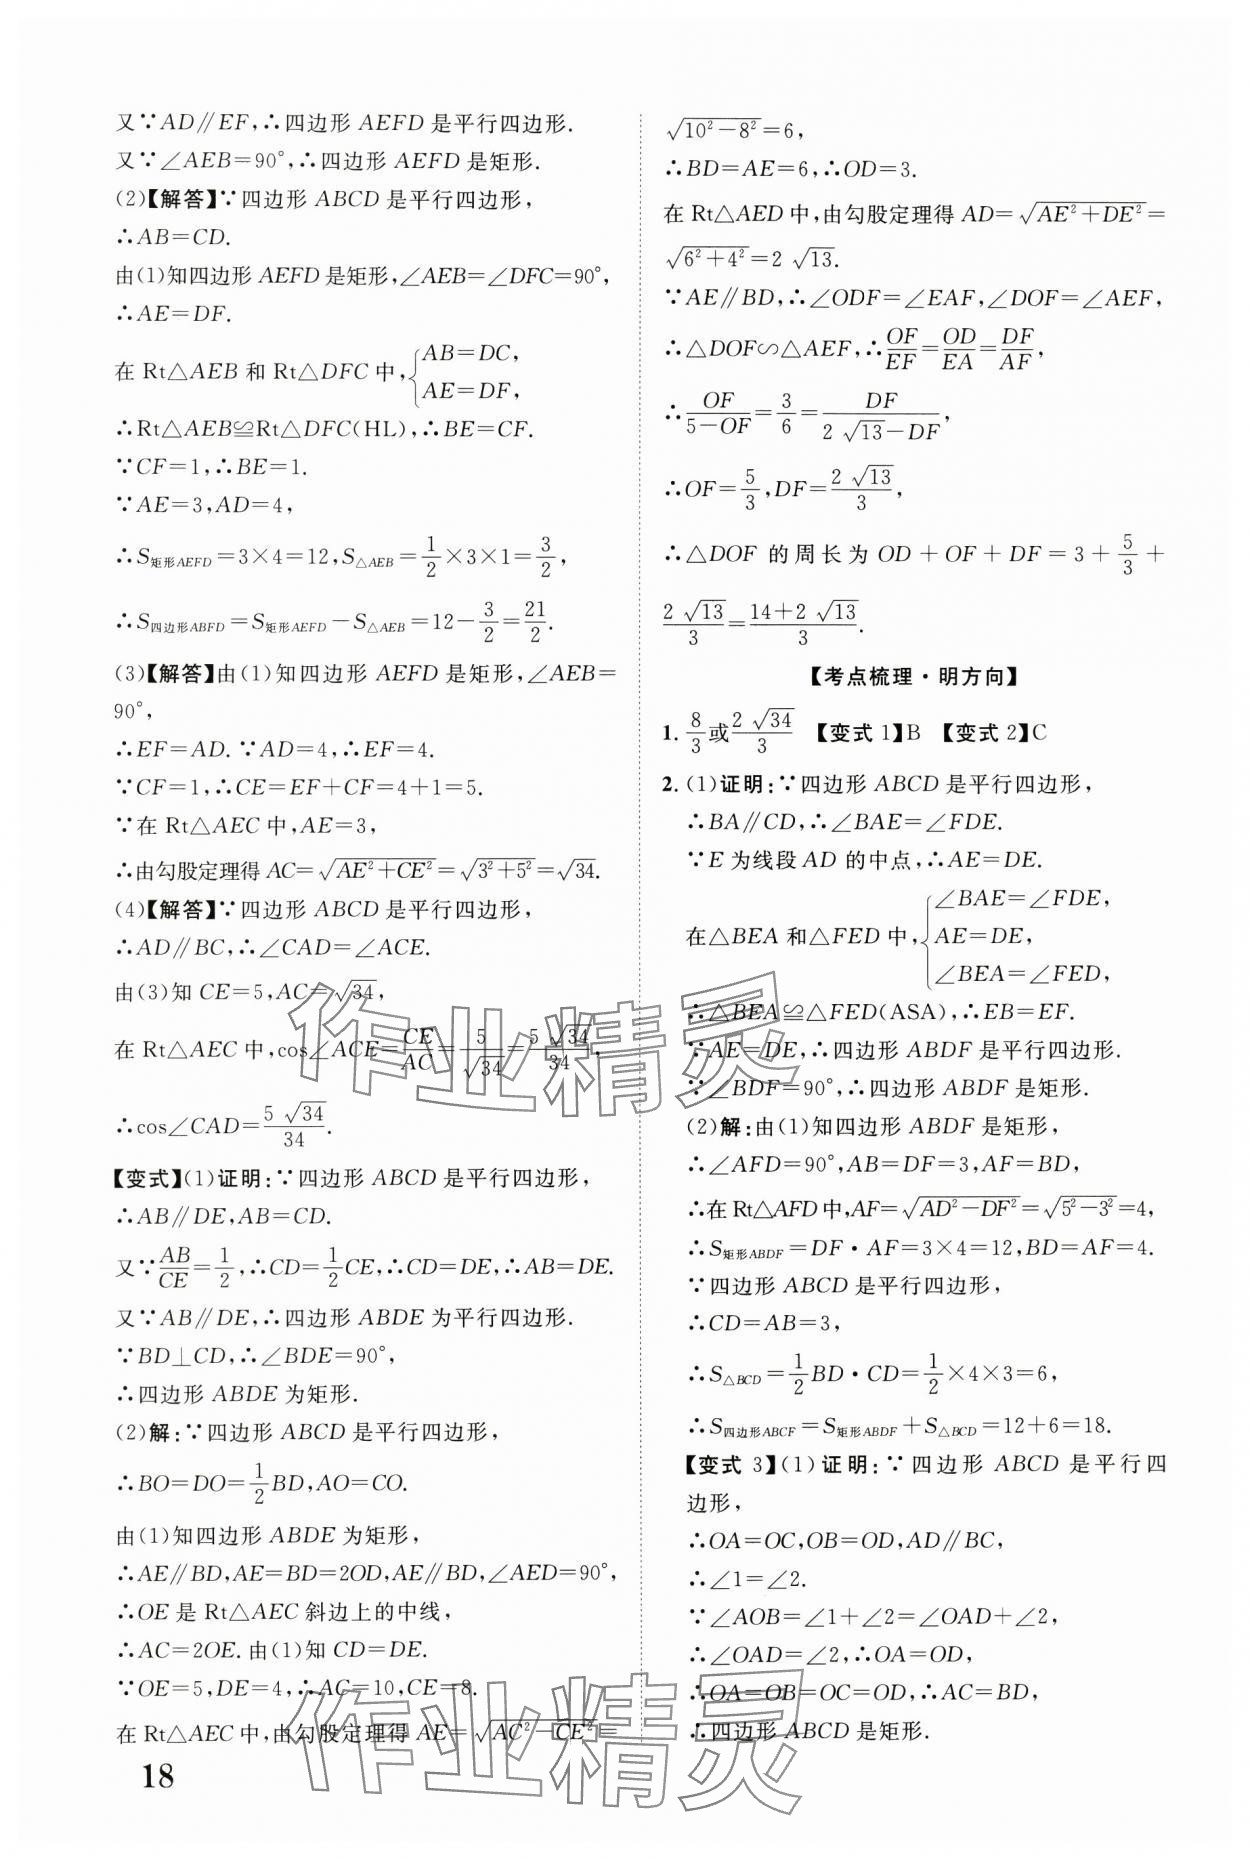 又∵AD∥EF,∴四边形 AEFD 是平行四边形.
又∵∠AEB=90°,∴四边形 AEFD 是矩形.
(2)【解答】∵四边形 ABCD 是平行四边形,
∴AB=CD.
由(1)知四边形 AEFD 是矩形,∠AEB=∠DFC=90°,
∴AE=DF.
在 Rt△AEB 和 Rt△DFC 中,{AB=DC, AE=DF,
∴Rt△AEB≌Rt△DFC(HL),∴BE=CF.
∵CF=1,∴BE=1.
∵AE=3,AD=4,
∴S矩形AEFD=3×4=12,S△AEB=1/2×3×1=3/2,
∴S四边形ABFD=S矩形AEFD-S△AEB=12-3/2=21/2.
(3)【解答】由(1)知四边形 AEFD 是矩形,∠AEB=
90°,
∴EF=AD.∵AD=4,∴EF=4.
∵CF=1,∴CE=EF+CF=4+1=5.
∵在 Rt△AEC 中,AE=3,
∴由勾股定理得 AC=√(AE²+CE²)=√(3²+5²)=√34.
(4)【解答】∵四边形 ABCD 是平行四边形,
∴AD∥BC,∴∠CAD=∠ACE.
由(3)知 CE=5,AC=√34,
在 Rt△AEC 中,cos∠ACE=CE/AC=5/√34=5√34/34,
∴cos∠CAD=5√34/34.
【变式】(1)证明:∵四边形 ABCD 是平行四边形,
∴AB∥DE,AB=CD.
又∵AB/CE=1/2,∴CD=1/2CE,∴CD=DE,∴AB=DE.
又∵AB∥DE,∴四边形 ABDE 为平行四边形.
∵BD⊥CD,∴∠BDE=90°,
∴四边形 ABDE 为矩形.
(2)解:∵四边形 ABCD 是平行四边形,
∴BO=DO=1/2BD,AO=CO.
由(1)知四边形 ABDE 为矩形,
∴AE∥BD,AE=BD=2OD,AE∥BD,∠AED=90°,
∴OE 是 Rt△AEC 斜边上的中线,
∴AC=2OE.由(1)知 CD=DE.
∵OE=5,DE=4,∴AC=10,CE=8.
在 Rt△AEC 中,由勾股定理得 AE=√(AC²-CE²)=
18
√(10²-8²)=6,
∴BD=AE=6,∴OD=3.
在 Rt△AED 中,由勾股定理得 AD=√(AE²+DE²)=
√(6²+4²)=2√13.
∵AE∥BD,∴∠ODF=∠EAF,∠DOF=∠AEF,
∴△DOF∽△AEF,∴OF/EF=OD/EA=DF/AF,
∴OF/(5-OF)=3/6=DF/(2√13-DF),
∴OF=5/3,DF=2√13/3,
∴△DOF 的周长为 OD+OF+DF=3+5/3+
2√13/3=(14+2√13)/3.
【考点梳理·明方向】
1. 8/3或2√34/3 【变式1】B 【变式2】C
2. (1)证明:∵四边形 ABCD 是平行四边形,
∴BA∥CD,∴∠BAE=∠FDE.
∵E 为线段 AD 的中点,∴AE=DE.
在△BEA 和△FED 中,{∠BAE=∠FDE, AE=DE, ∠BEA=∠FED,
∴△BEA≌△FED(ASA),∴EB=EF.
∵AE=DE,∴四边形 ABDF 是平行四边形.
∵∠BDF=90°,∴四边形 ABDF 是矩形.
(2)解:由(1)知四边形 ABDF 是矩形,
∴∠AFD=90°,AB=DF=3,AF=BD,
∴在 Rt△AFD 中,AF=√(AD²-DF²)=√(5²-3²)=4,
∴S矩形ABDF=DF·AF=3×4=12,BD=AF=4.
∵四边形 ABCD 是平行四边形,
∴CD=AB=3,
∴S△BCD=1/2BD·CD=1/2×4×3=6,
∴S四边形ABCF=S矩形ABDF+S△BCD=12+6=18.
【变式 3】(1)证明:∵四边形 ABCD 是平行四
边形,
∴OA=OC,OB=OD,AD∥BC,
∴∠1=∠2.
∵∠AOB=∠1+∠2=∠OAD+∠2,
∴∠OAD=∠2,∴OA=OD,
∴OA=OB=OC=OD,∴AC=BD,
∴四边形 ABCD 是矩形.
作业精灵
作业精灵